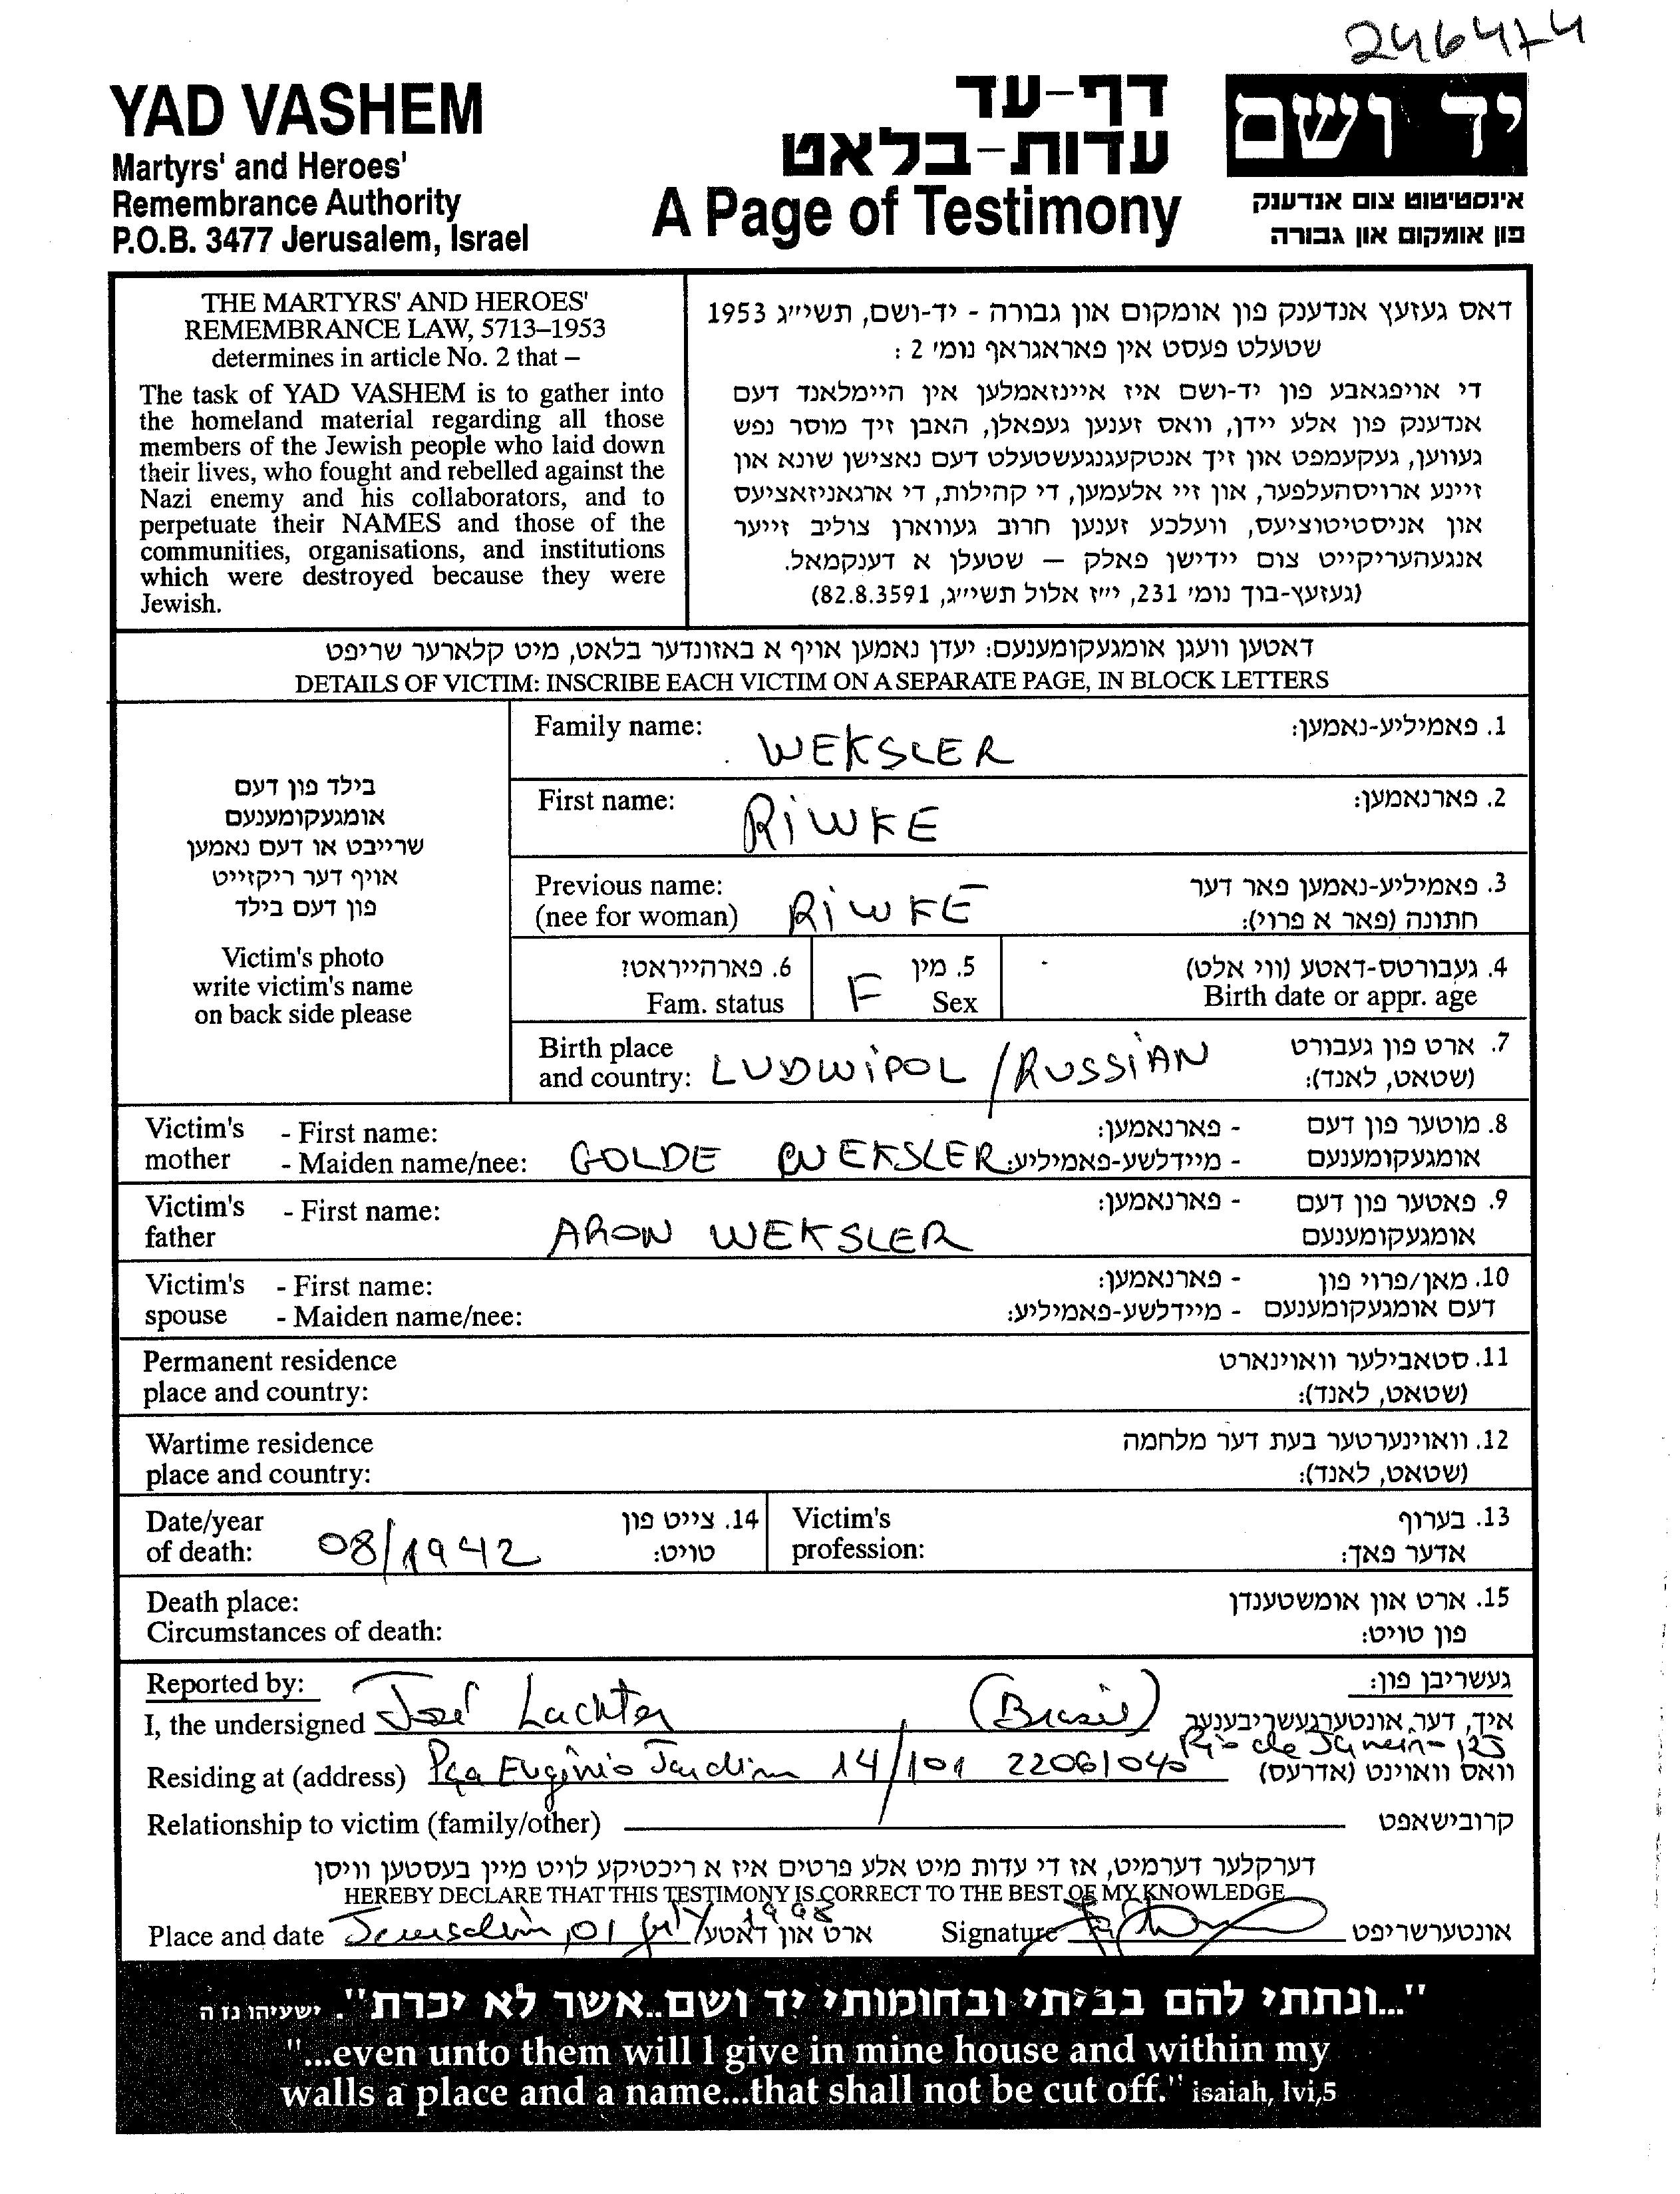 246474
YAD VASHEM
Martyrs' and Heroes'
Remembrance Authority
P.O.B. 3477 Jerusalem, Israel
דף-עד
עדות-בלאט
A Page of Testimony
יד ושם
אינסטיטוט צום אנדענק
פון אומקום און גבורה
THE MARTYRS' AND HEROES'
REMEMBRANCE LAW, 5713–1953
determines in article No. 2 that –
The task of YAD VASHEM is to gather into
the homeland material regarding all those
members of the Jewish people who laid down
their lives, who fought and rebelled against the
Nazi enemy and his collaborators, and to
perpetuate their NAMES and those of the
communities, organisations, and institutions
which were destroyed because they were
Jewish.
דאס געזעץ אנדענק פון אומקום און גבורה - יד-ושם, תשי״ג 1953
שטעלט פעסט אין פאראגראף נומ׳ 2 :
די אויפגאבע פון יד-ושם איז איינזאמלען אין היימלאנד דעם
אנדענק פון אלע יידן, וואס זענען געפאלן, האבן זיך מוסר נפש
געווען, געקעמפט און זיך אנטקעגנגעשטעלט דעם נאצישן שונא און
זיינע ארויסהעלפער, און זיי אלעמען, די קהילות, די ארגאניזאציעס
און אניסטיטוציעס, וועלכע זענען חרוב געווארן צוליב זייער
אנגעהעריקייט צום יידישן פאלק — שטעלן א דענקמאל.
(געזעץ-בוך נומ׳ 231, י״ז אלול תשי״ג, 82.8.3591)
דאטען וועגן אומגעקומענעם: יעדן נאמען אויף א באזונדער בלאט, מיט קלארער שריפט
DETAILS OF VICTIM: INSCRIBE EACH VICTIM ON A SEPARATE PAGE, IN BLOCK LETTERS
בילד פון דעם
אומגעקומענעם
שרייבט או דעם נאמען
אויף דער ריקזייט
פון דעם בילד
Victim's photo
write victim's name
on back side please
Family name: WEKSLER 1. פאמיליע-נאמען:
First name: RIWKE 2. פארנאמען:
Previous name: 3. פאמיליע-נאמען פאר דער
(nee for woman) RIWKE חתונה (פאר א פרוי):
6. פארהייראט? 5. מין 4. געבורטס-דאטע (ווי אלט)
Fam. status F Sex Birth date or appr. age
Birth place 7. ארט פון געבורט
and country: LUDWIPOL / RUSSIAN (שטאט, לאנד):
Victim's - First name: - פארנאמען: 8. מוטער פון דעם
mother - Maiden name/nee: GOLDE WEKSLER - מיידלשע-פאמיליע: אומגעקומענעם
Victim's - First name: - פארנאמען: 9. פאטער פון דעם
father ARON WEKSLER אומגעקומענעם
Victim's - First name: - פארנאמען: 10. מאן/פרוי פון
spouse - Maiden name/nee: - מיידלשע-פאמיליע: דעם אומגעקומענעם
Permanent residence 11. סטאבילער וואוינארט
place and country: (שטאט, לאנד):
Wartime residence 12. וואוינערטער בעת דער מלחמה
place and country: (שטאט, לאנד):
Date/year 14. צייט פון Victim's 13. בערוף
of death: 08/1942 טויט: profession: אדער פאך:
Death place: 15. ארט און אומשטענדן
Circumstances of death: פון טויט:
Reported by: געשריבן פון:
I, the undersigned José Lachter (Brasil) איך, דער אונטערגעשריבענער
Rio de Janeiro
Residing at (address) Pça Eugênio Jardim 14/101 22061040 וואס וואוינט (אדרעס)
Relationship to victim (family/other) קרובישאפט
דערקלער דערמיט, אז די עדות מיט אלע פרטים איז א ריכטיקע לויט מיין בעסטען וויסן
HEREBY DECLARE THAT THIS TESTIMONY IS CORRECT TO THE BEST OF MY KNOWLEDGE
Place and date Jerusalém, 01 July 1998 ארט און דאטע Signature אונטערשריפט
"...ונתתי להם בביתי ובחומותי יד ושם..אשר לא יכרת". ישעיהו נו ה
"...even unto them will I give in mine house and within my
walls a place and a name...that shall not be cut off." isaiah, lvi,5